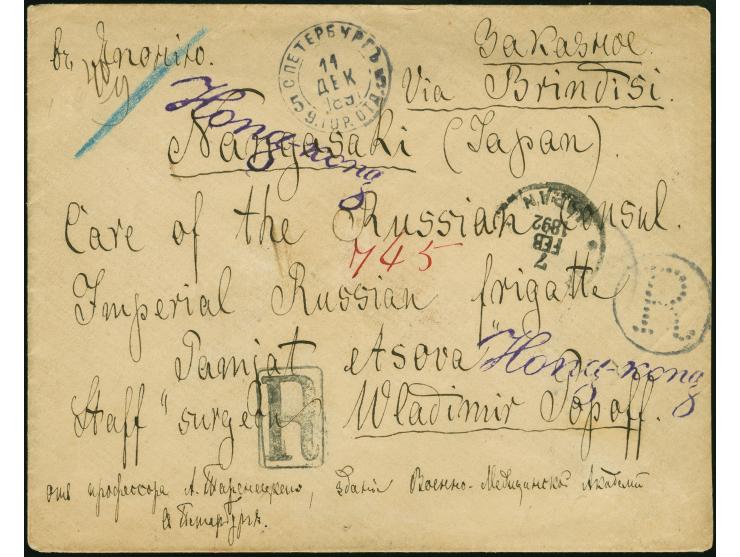 въ Японію.
С.ПЕТЕРБУРГЪ
11
ДЕК
189
5 ГОР. ОТД. 5
Заказное.
Via Brindisi.
Hong-kong
Nangasaki (Japan).
Care of the Russian Consul.
7
FEB
1892
JAPAN
745
Imperial Russian frigatte
R
"Pamjat Asova"
Hong-kong
Staff surgeon Wladimir Popoff.
R
отъ профессора А. Таренецкаго, зданія Военно-Медицинской Академіи